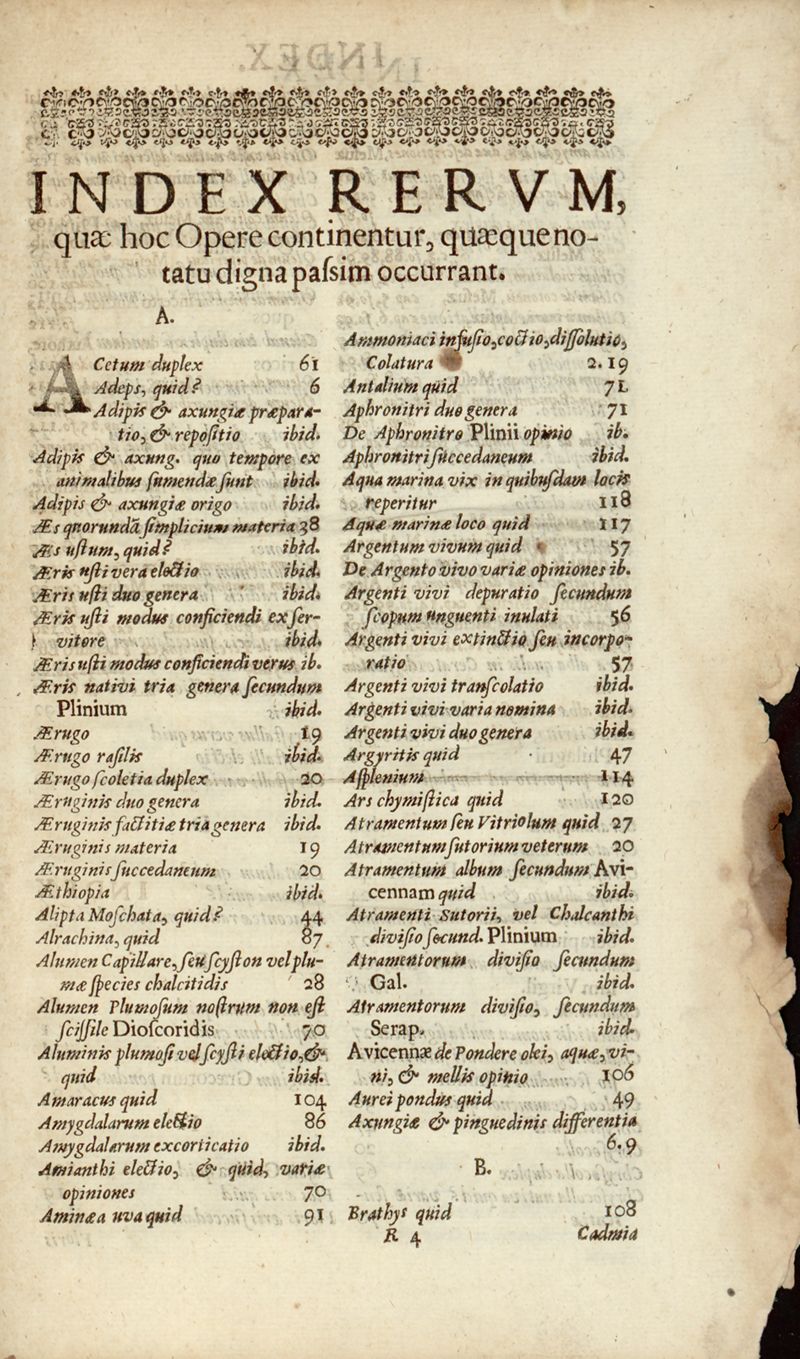 INDEX RERVM,
quæ hoc Opere continentur, quæque no-
tatu digna paſsim occurrant.
A.
ACetum duplex 61
Adeps, quid? 6
Adipis & axungiæ præpara-
tio, & repoſitio ibid.
Adipis & axung. quo tempore ex
animalibus ſumendæ ſunt ibid.
Adipis & axungiæ origo ibid.
Æs quorundã ſimplicium materia 38
Æs uſtum, quid? ibid.
Æris uſti vera electio ibid.
Æris uſti duo genera ibid.
Æris uſti modus conficiendi ex ſer-
vitore ibid.
Æris uſti modus conficiendi verus ib.
Æris nativi tria genera ſecundum
Plinium ibid.
Ærugo 19
Ærugo raſilis ibid.
Ærugo ſcoletia duplex 20
Æruginis duo genera ibid.
Æruginis factitiæ tria genera ibid.
Æruginis materia 19
Æruginis ſuccedaneum 20
Æthiopia ibid.
Alipta Moſchata, quid? 44
Alrachina, quid 87
Alumen Capillare, ſeu ſcyſton vel plu-
mæ ſpecies chalcitidis 28
Alumen Plumoſum noſtrum non eſt
ſciſſile Dioſcoridis 70
Aluminis plumoſi vel ſcyſti electio, &
quid ibid.
Amaracus quid 104
Amygdalarum electio 86
Amygdalarum excorticatio ibid.
Amianthi electio, & quid, variæ
opiniones 70
Aminæa uva quid 91
Ammoniaci infuſio, coctio, diſſolutio,
Colatura 2. 19
Antalium quid 71
Aphronitri duo genera 71
De Aphronitro Plinii opinio ib.
Aphronitri ſuccedaneum ibid.
Aqua marina vix in quibuſdam locis
reperitur 118
Aquæ marinæ loco quid 117
Argentum vivum quid 57
De Argento vivo variæ opiniones ib.
Argenti vivi depuratio ſecundum
ſcopum unguenti inulati 56
Argenti vivi extinctio ſeu incorpo-
ratio 57
Argenti vivi tranſcolatio ibid.
Argenti vivi varia nomina ibid.
Argenti vivi duo genera ibid.
Argyritis quid 47
Aſplenium 114
Ars chymiſtica quid 120
Atramentum ſeu Vitriolum quid 27
Atramentum ſutorium veterum 20
Atramentum album ſecundum Avi-
cennam quid ibid.
Atramenti Sutorii, vel Chalcanthi
diviſio ſecund. Plinium ibid.
Atramentorum diviſio ſecundum
Gal. ibid.
Atramentorum diviſio, ſecundum
Serap. ibid.
Avicennæ de Pondere olei, aquæ, vi-
ni, & mellis opinio 106
Aurei pondus quid 49
Axungiæ & pinguedinis differentia
6. 9
B.
Brathys quid 108
R 4 Cadmia